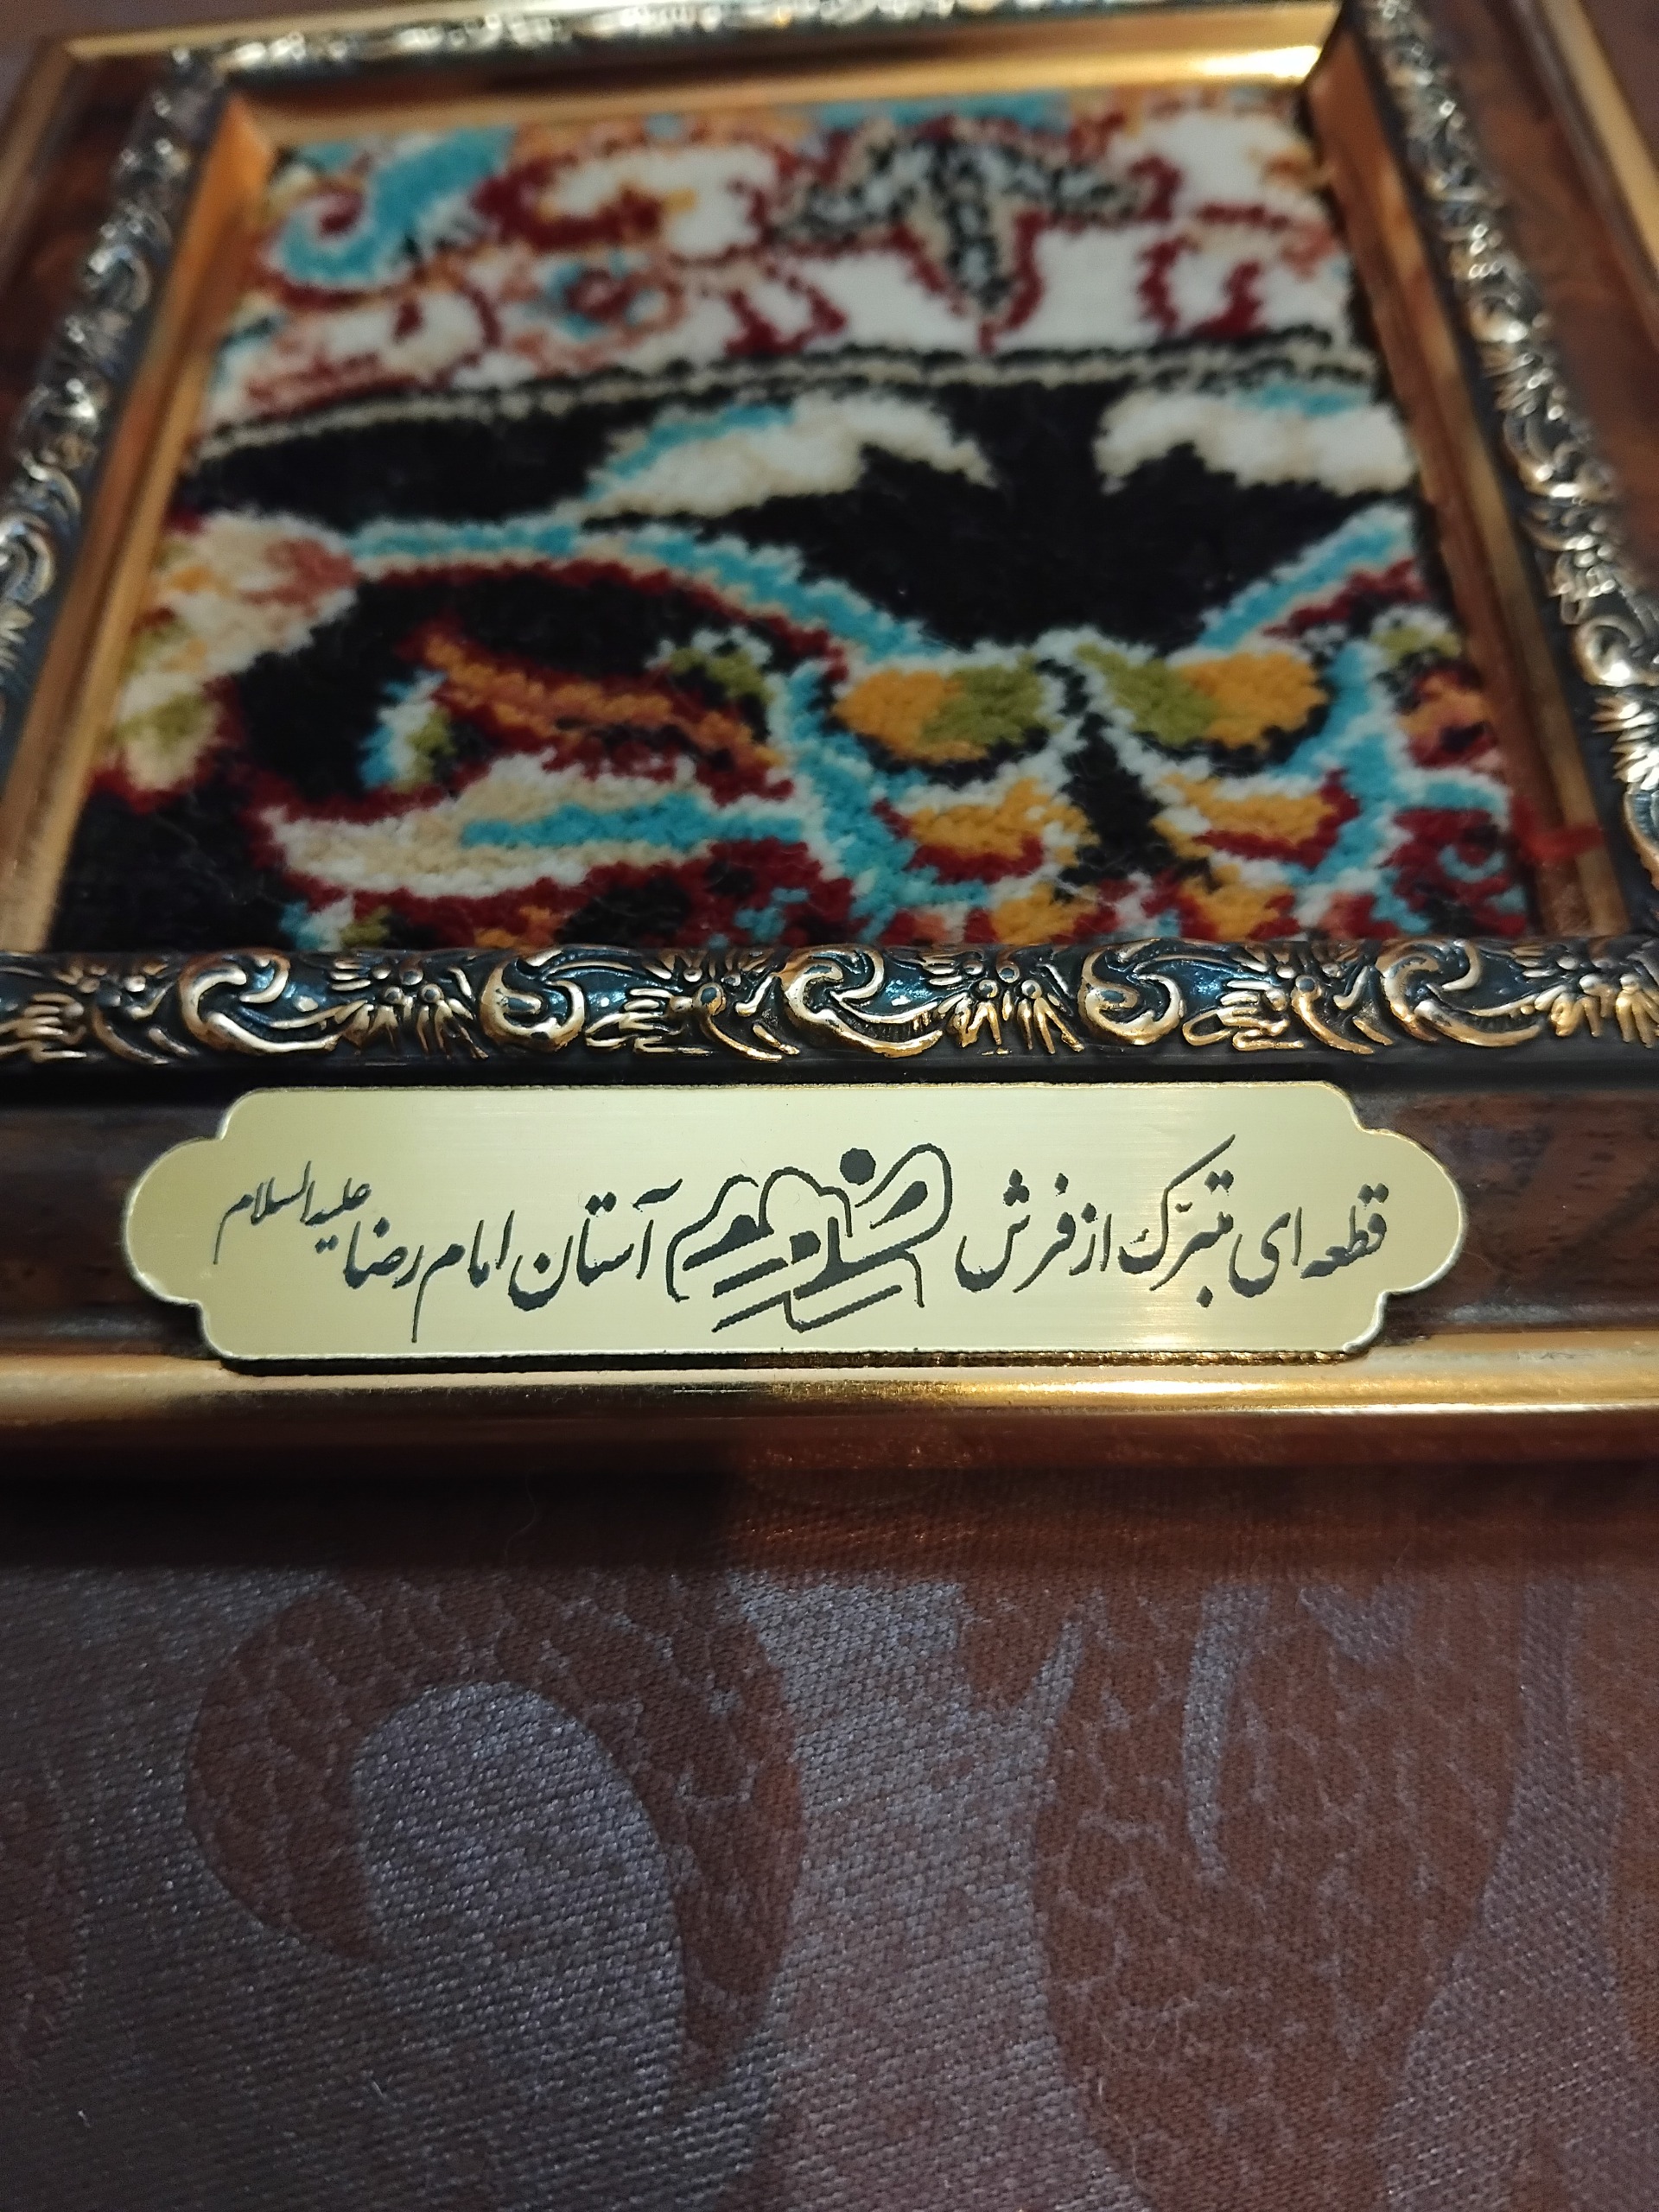 قطعه ای متبرّک از فرش آستان امام رضا علیه السلام